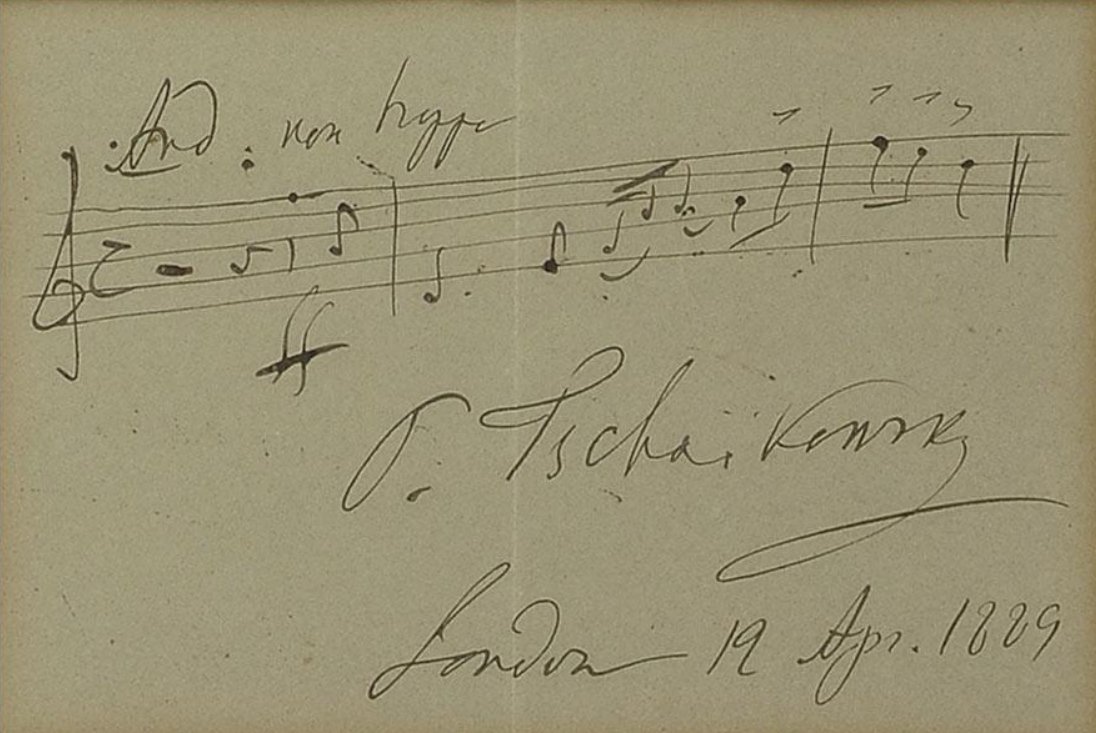 And. non troppo
ff
P. Tschaikowsky
London 12 Apr. 1889